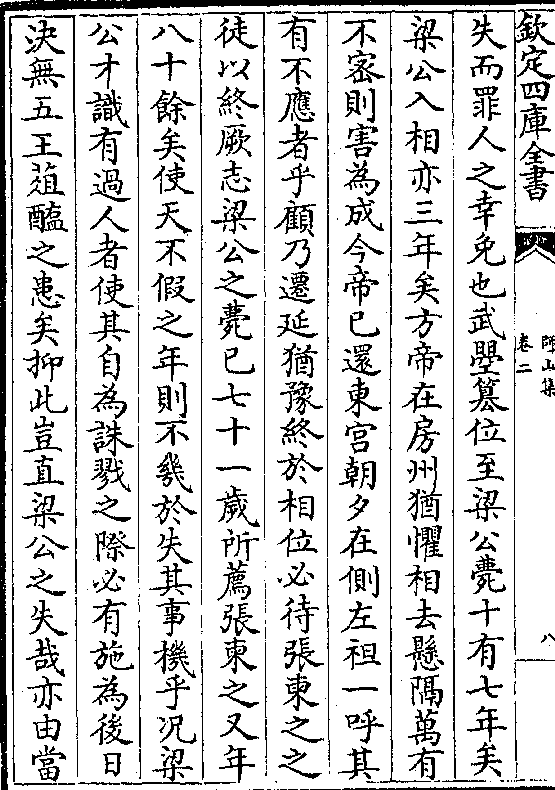 欽定四庫全書
師山集
卷二
八
失而罪人之幸免也武曌簒位至梁公薨十有七年矣
梁公入相亦三年矣方帝在房州猶懼相去懸隔萬有
不宻則害為成今帝已還東宫朝夕在側左袒一呼其
有不應者乎顧乃遷延猶豫終於相位必待張柬之之
徒以終厥志梁公之薨已七十一歲所薦張柬之又年
八十餘矣使天不假之年則不幾於失其事機乎况梁
公才識有過人者使其自為誅戮之際必有施為後日
決無五王葅醢之患矣抑此豈直梁公之失哉亦由當